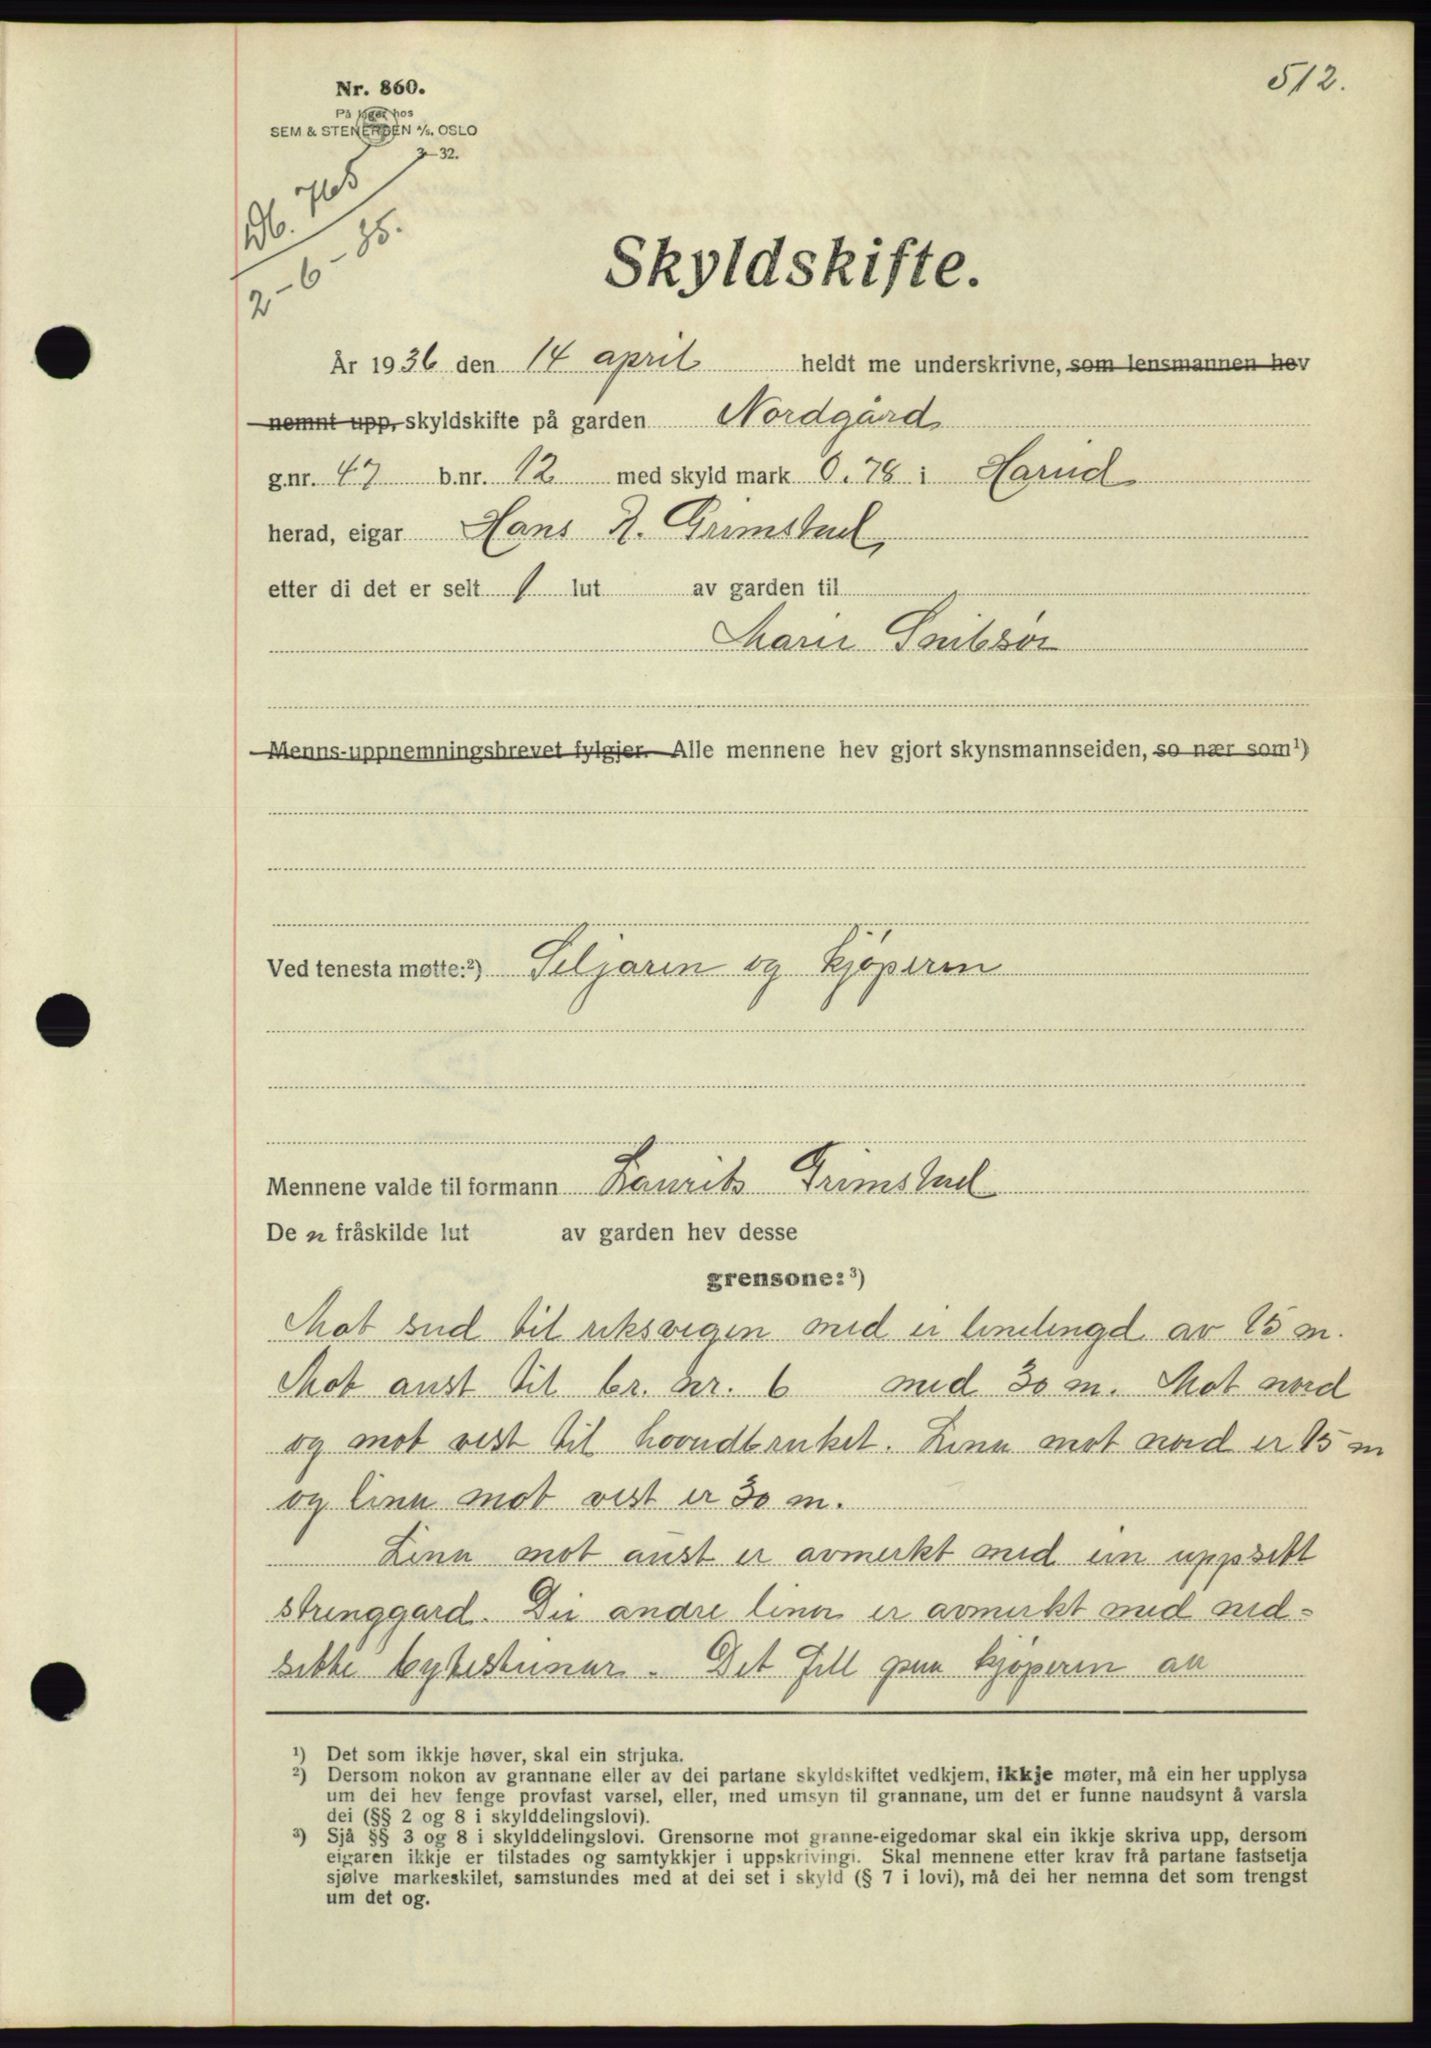 512.
Nr. 860.
På lager hos
SEM & STENERSEN A/S. OSLO
3—32.
Db. 765
2-6-35.
Skyldskifte.
År 1936 den 14 april heldt me underskrivne, som lensmannen hev
nemnt upp, skyldskifte på garden Nordgård
g.nr. 47 b.nr. 12 med skyld mark 0.78 i Hareid
herad, eigar Hans R. Grimstad
etter di det er selt 1 lut av garden til
Marie Snibsør
Menns-uppnemningsbrevet fylgjer. Alle mennene hev gjort skynsmannseiden, so nær som¹)
Ved tenesta møtte:²) Seljaren og kjøperen
Mennene valde til formann Laurits Grimstad
De n fråskilde lut av garden hev desse
grensone:³)
Mot sud til riksvegen med ei linelengd av 15 m.
Mot aust til br. nr. 6 med 30 m. Mot nord
og mot vest til hovudbruket. Lina mot nord er 15 m
og lina mot vest er 30 m.
Lina mot aust er avmerkt med ein uppsett
strenggard. Dei andre linor er avmerkt med ned-
sette bytesteinar. Det fell paa kjøperen aa
¹) Det som ikkje høver, skal ein strjuka.
²) Dersom nokon av grannane eller av dei partane skyldskiftet vedkjem, ikkje møter, må ein her upplysa
um dei hev fenge provfast varsel, eller, med umsyn til grannane, um det er funne naudsynt å varsla
dei (§§ 2 og 8 i skylddelingslovi).
³) Sjå §§ 3 og 8 i skylddelingslovi. Grensorne mot granne-eigedomar skal ein ikkje skriva upp, dersom
eigaren ikkje er tilstades og samtykkjer i uppskrivingi. Skal mennene etter krav frå partane fastsetja
sjølve markeskilet, samstundes med at dei set i skyld (§ 7 i lovi), må dei her nemna det som trengst
um det og.